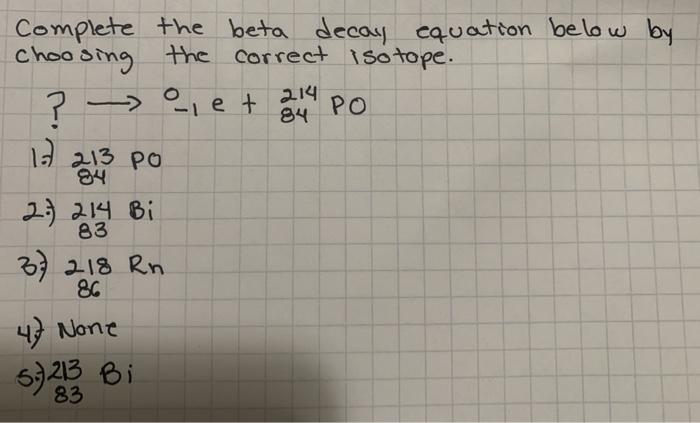 Complete the beta decay equation below by
choosing the correct isotope.
? → ⁰₋₁ e + ²¹⁴₈₄ PO
1.) ²¹³₈₄ PO
2.) ²¹⁴₈₃ Bi
3.) ²¹⁸₈₆ Rn
4.) None
5.) ²¹³₈₃ Bi